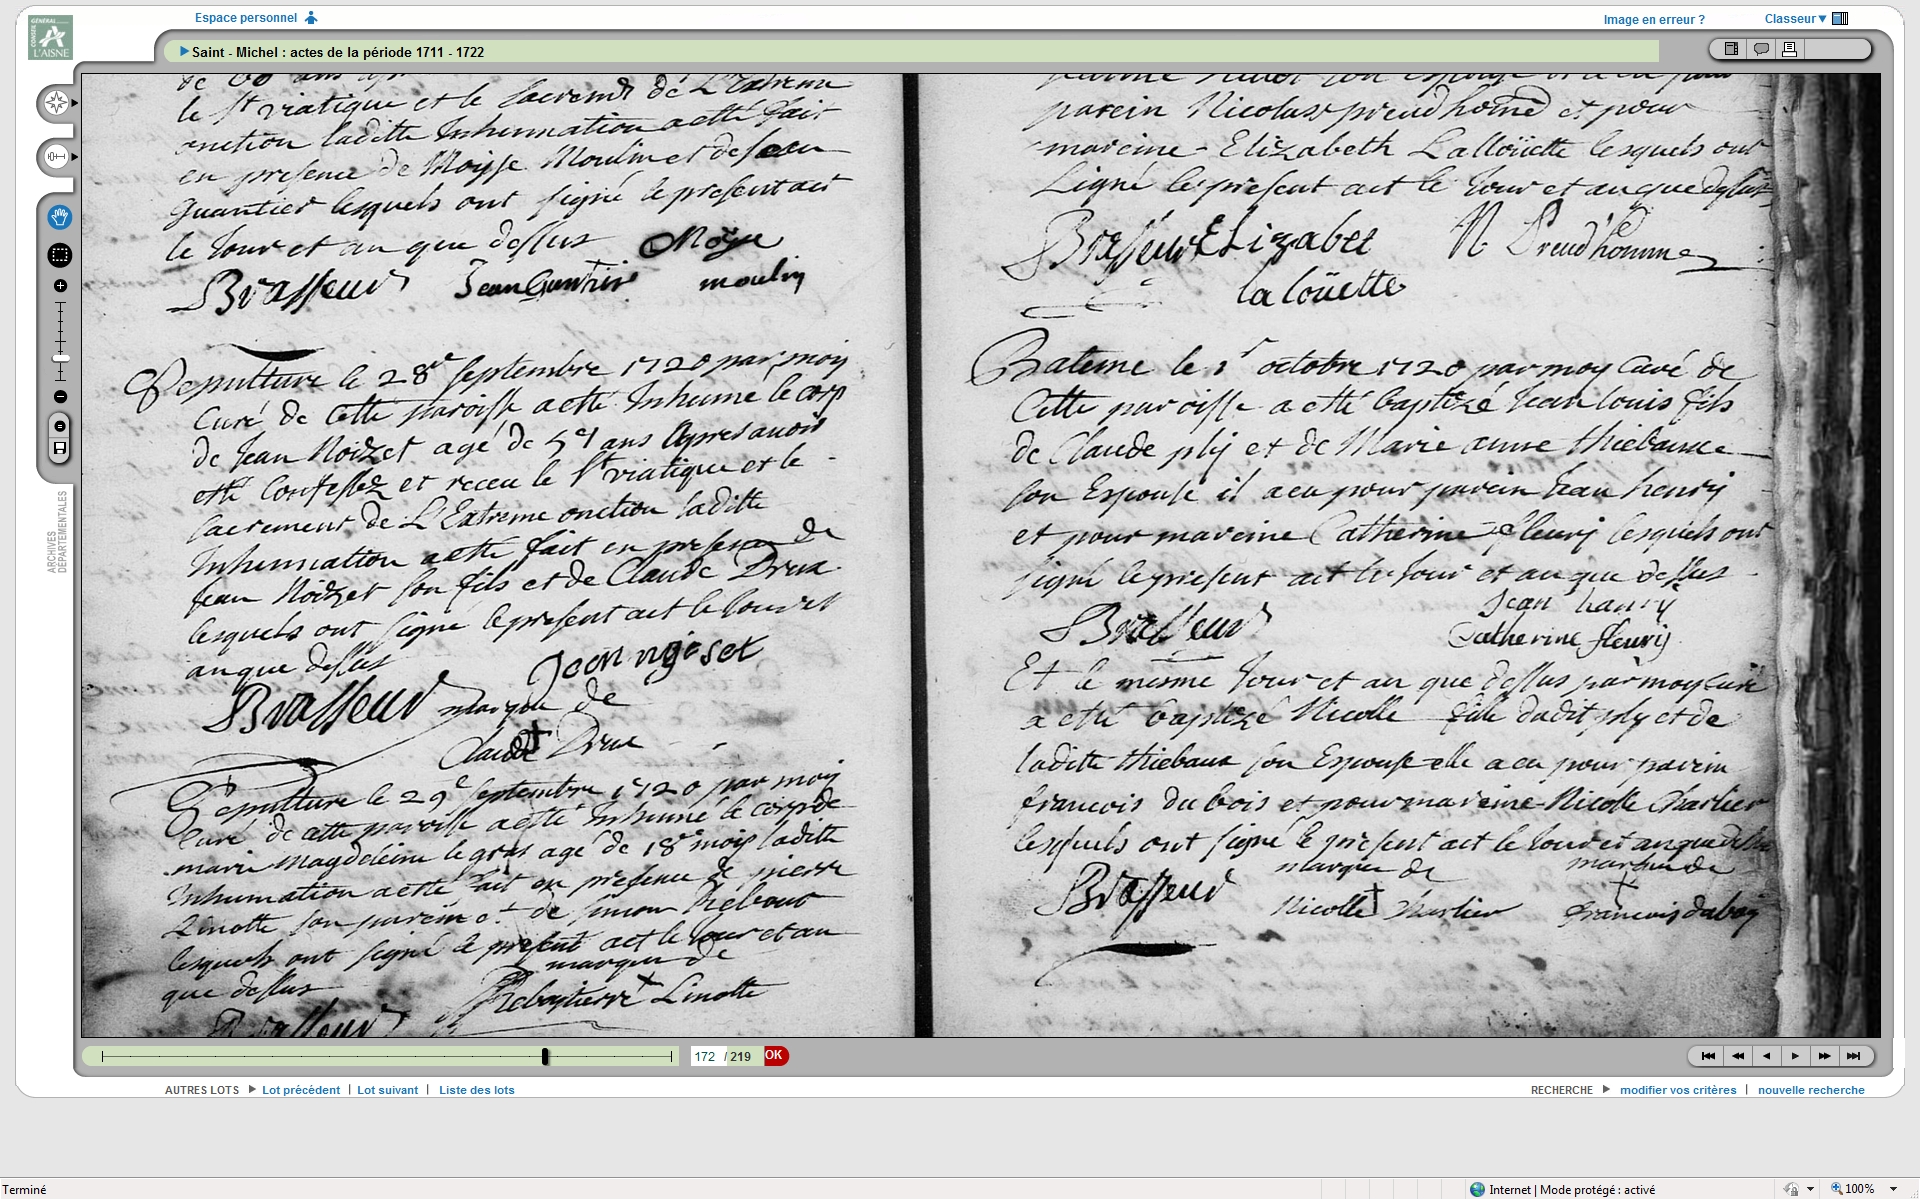 Espace personnel
Image en erreur ?
Classeur
GÉNÉRAL
CONSEIL
L'AISNE
Saint - Michel : actes de la période 1711 - 1722
ARCHIVES
DÉPARTEMENTALES
de 60 ans
le St viatique et le sacremt de L'Extreme
onction laditte Inhumation a etté fait
en presence de Moisse Moulin et de Jean
Quantier lesquels ont signé le present act
le Jour et an que dessus Moÿse
Brasseur Jean Quintin moulin
Sepulture le 28e septembre 1720 par moy
Curé de cette paroisse a etté Inhumé le corp
de Jean Noizet agé de ans Apres avoir
etté Confessez et receu le St viatique et le
sacrement de L'Extreme onction laditte
Inhumation a etté fait en presence de
Jean Noizet son fils et de Claude Drux
lesquels ont signé le present act le Jour et
an que dessus Jean noiset
Brasseur marque de
Claude Drux
Sepulture le 29e septembre 1720 par moy
Curé de cette paroisse a etté Inhumé le corp de
marie magdeleine le gros agé de 18e mois laditte
Inhumation a etté fait en presence de pierre
Linotte son parein et de simon Rebout
lesquels ont signé le present act le Jour et an
que dessus marque de
pierre Linotte
Brasseur
son espouse
parein Nicolas preudhome et pour
mareine Elizabeth Lalloüette lesquels ont
signé le present act le Jour et an que dessus
Brasseur Elizabet N Preud'homme
la loüette
Bateme le 1r octobre 1720 par moy Curé de
Cette paroisse a etté baptizé Jean louis fils
de Claude ply et de Marie anne thiebaux
son Espouse il a eu pour parein Jean henry
et pour mareine Catherine fleury lesquels ont
signé le present act le Jour et an que dessus
Jean hanry
Brasseur Catherine fleurij
Et le mesme Jour et an que dessus par moy Curé
a etté baptizé Nicolle fille dudit ply et de
laditte thiebaux son Espouse elle a eu pour parein
francois du bois et pour mareine Nicolle Charlier
lesquels ont signé le present act le Jour et an que dessus
marque de marque de
Brasseur Nicolle Charlier francois duboy
172 / 219 OK
AUTRES LOTS Lot précédent | Lot suivant | Liste des lots
RECHERCHE modifier vos critères | nouvelle recherche
Terminé
Internet | Mode protégé : activé
100%